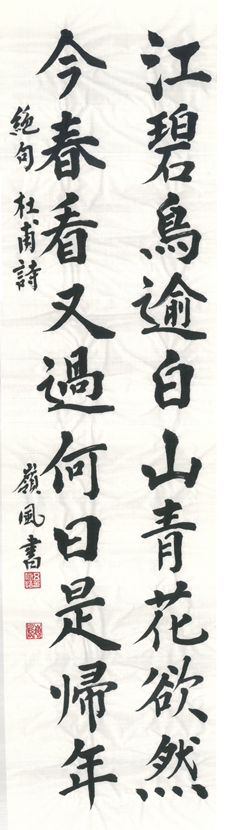 江碧鳥逾白山青花欲然
今春看又過何日是歸年
絶句 杜甫詩 嶺風書